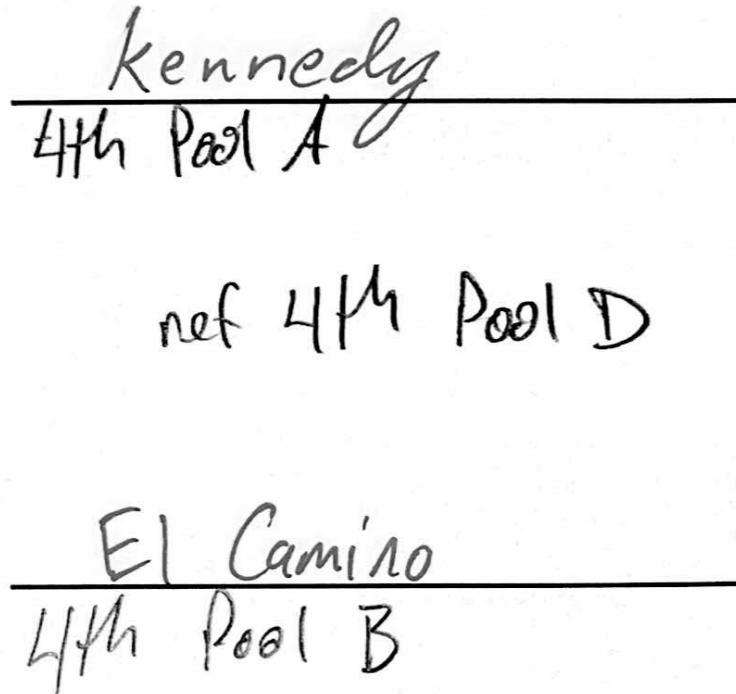 Kennedy
4th Pool A
ref 4th Pool D
El Camino
4th Pool B